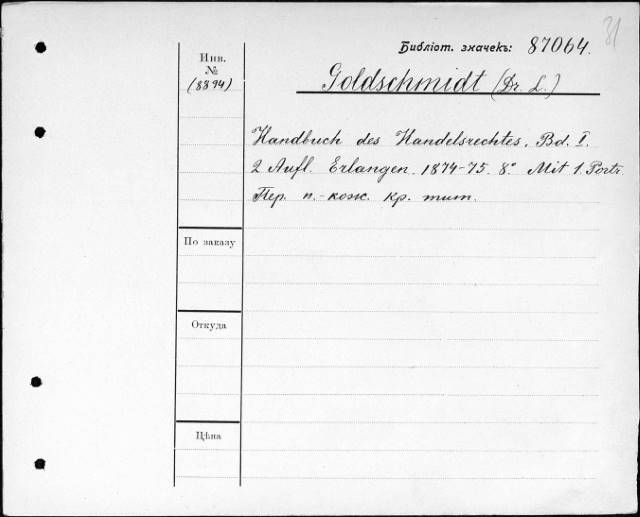 31
Библіот. значекъ: 87064.
Инв.
№
(8894)
Goldschmidt (Dr. L.)
Handbuch des Handelsrechtes. Bd. I.
2 Aufl. Erlangen. 1874-75. 8.° Mit 1. Portr.
Пер. п.-кож. кр. тит.
По заказу
Откуда
Цѣна